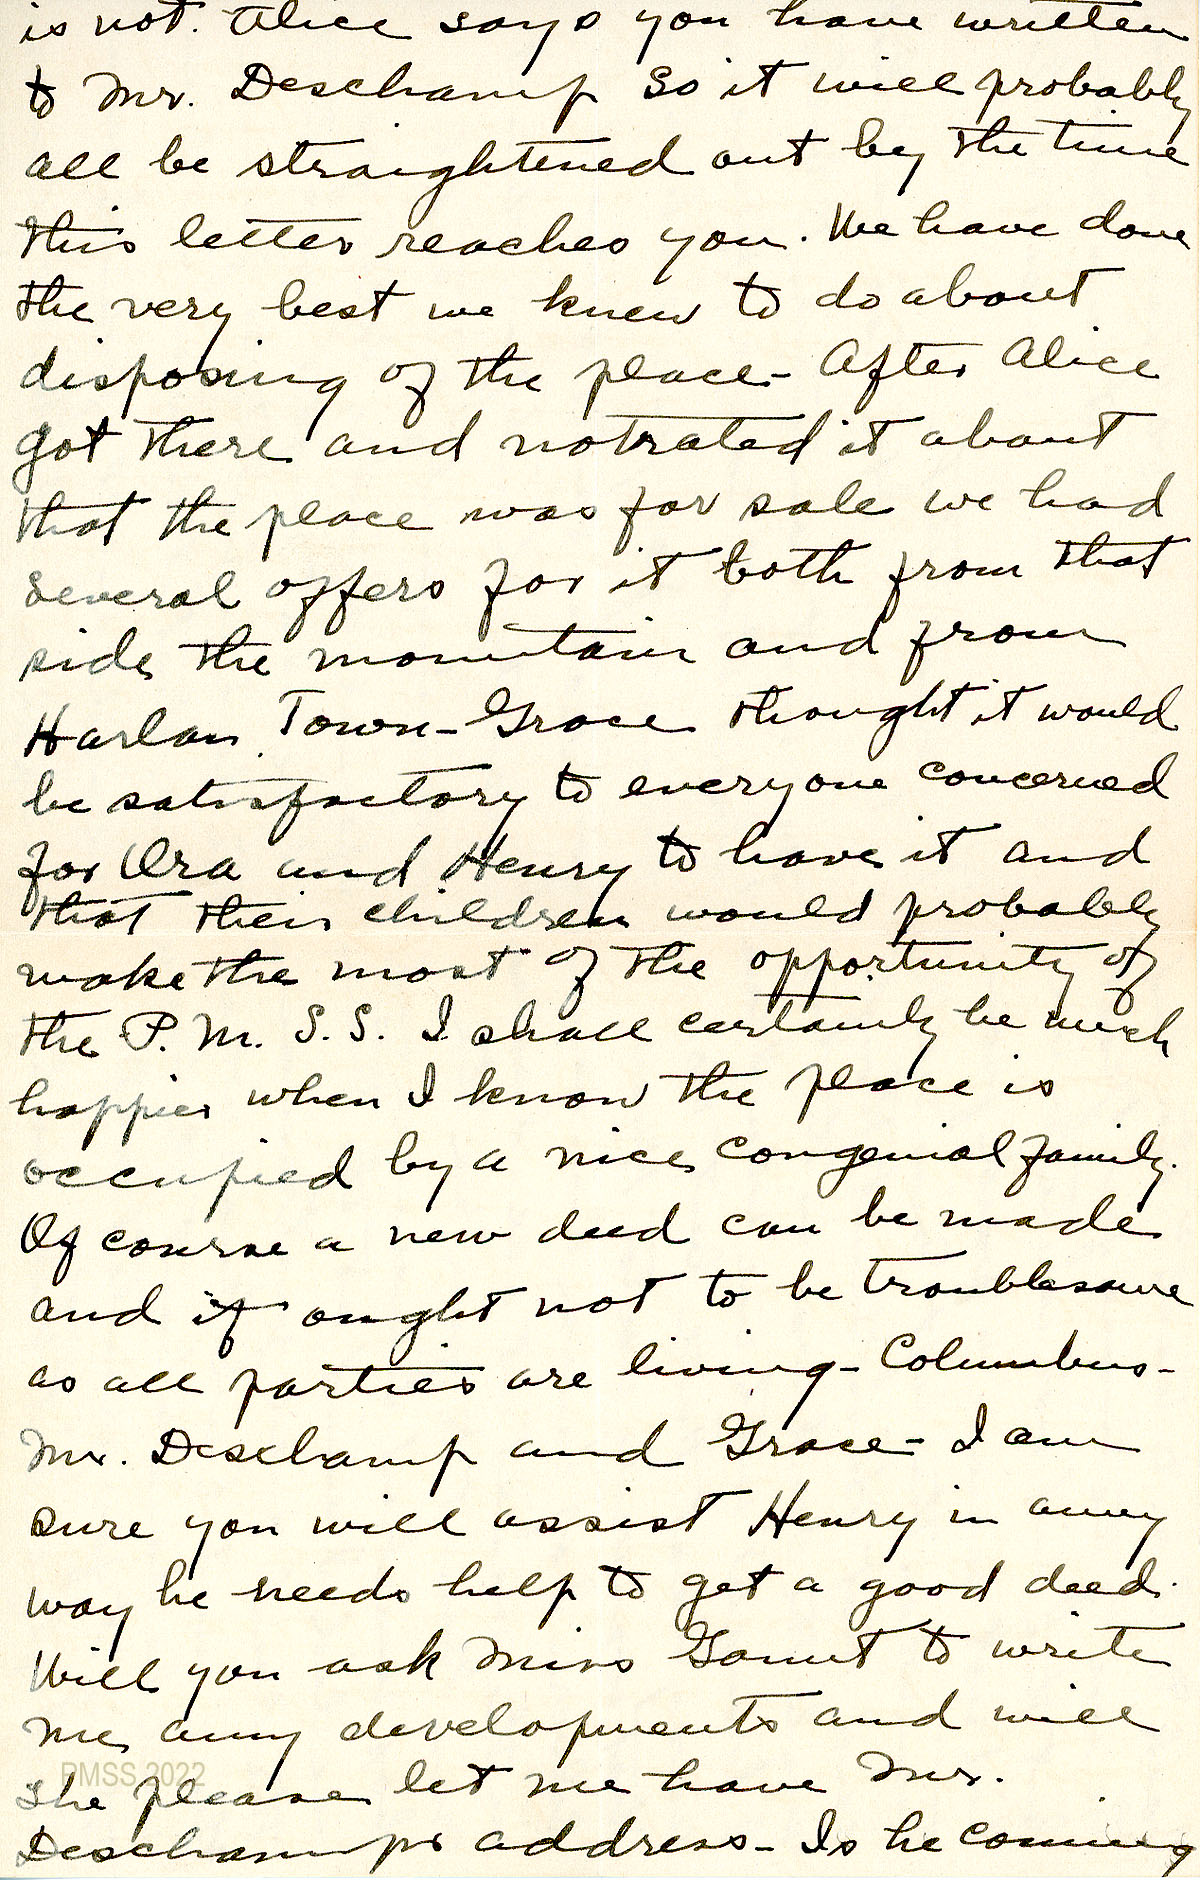 is not. Alice says you have written
to Mr. Deschamp so it will probably
all be straightened out by the time
this letter reaches you. We have done
the very best we knew to do about
disposing of the place - After Alice
got there and notrated it about
that the place was for sale we had
several offers for it both from that
side the mountain and from
Harlan Town - Grace thought it would
be satisfactory to everyone concerned
for Ora and Henry to have it and
that their children would probably
make the most of the opportunity of
the P. M. S. S. I shall certainly be much
happier when I know the place is
occupied by a nice congenial family.
Of course a new deed can be made
and it ought not to be troublesome
as all parties are living - Columbus -
Mr. Deschamp and Grace - I am
sure you will assist Henry in any
way he needs help to get a good deed.
Will you ask Miss Gamut to write
me any developments and will
she please let me have Mr.
PMSS 2022
Deschamps address - Is he coming